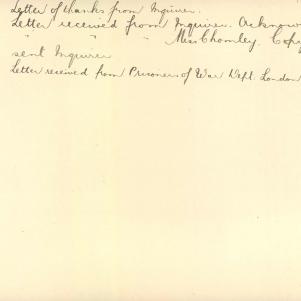 Letter of thanks from Inquirer.
Letter received from Inquirer. Acknow
" " " Miss Chomley. Copy
sent Inquirer
Letter received from Prisoners of War Dept. London